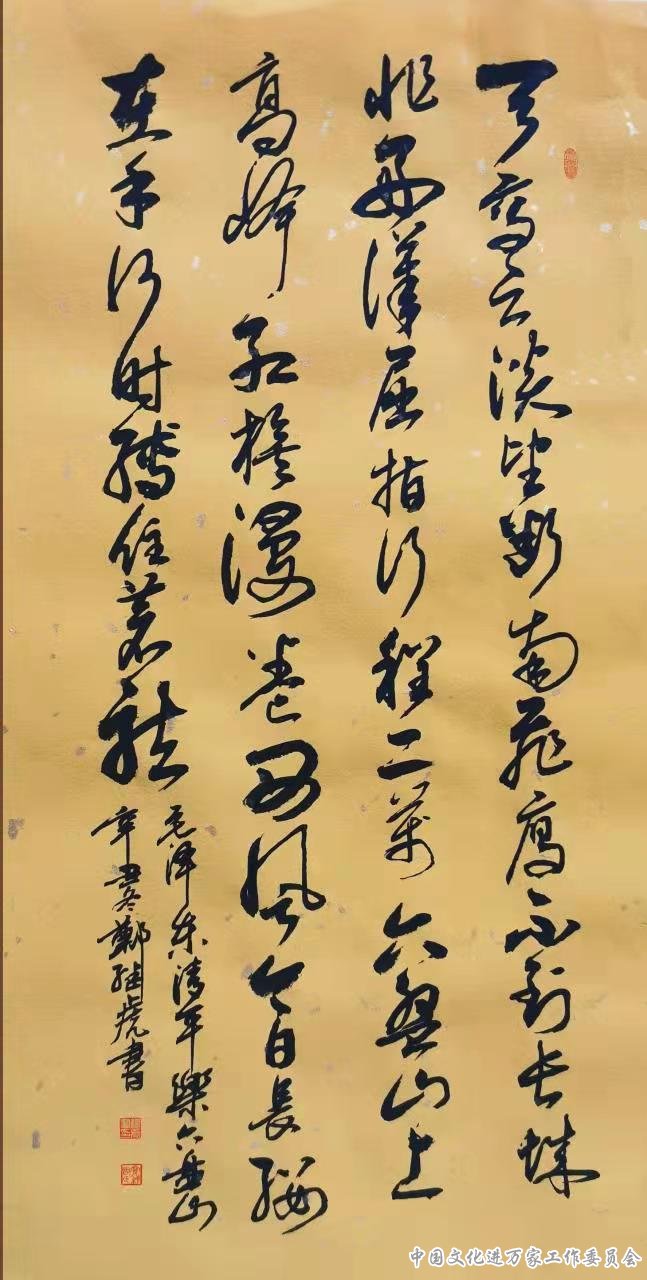 天高云淡望断南飞雁不到长城
非好汉屈指行程二萬六盘山上
高峰红旗漫卷西风今日長缨
在手何时缚住苍龙
毛泽东清平樂六盘山
辛丑冬鄭继虎書
中国文化进万家工作委员会